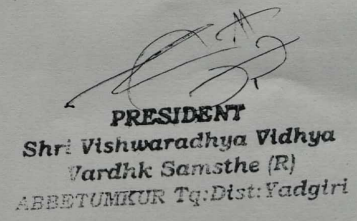 PRESIDENT
Shri Vishwaradhya Vidhya
Vardhk Samsthe (R)
ABBETUMKUR Tq:Dist:Yadgiri